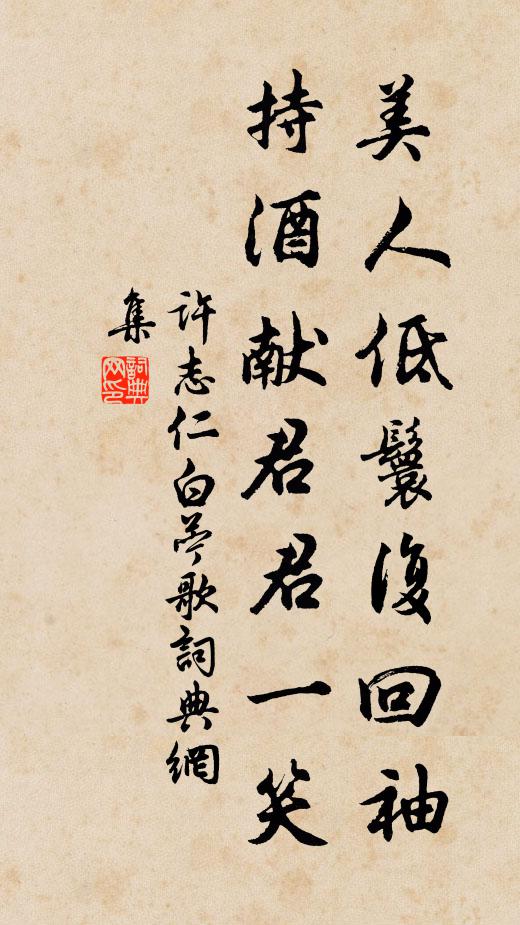 美人低鬟復回袖
持酒献君君一笑
許志仁白苎歌詞典網
集
詞典网印